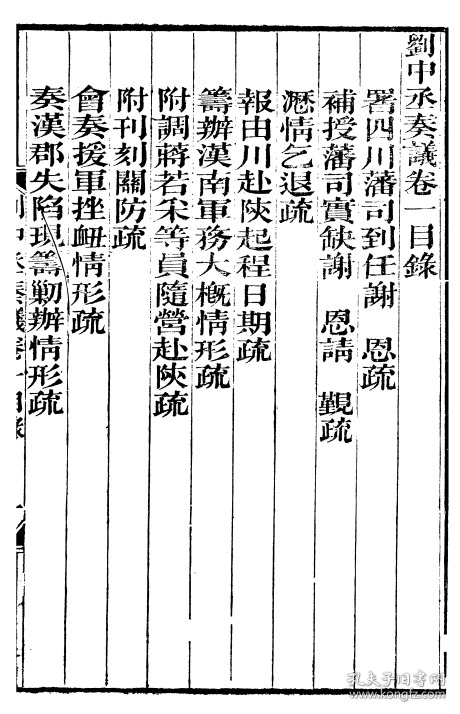 劉中丞奏議卷一目錄
署四川藩司到任謝　恩疏
補授藩司實缺謝　恩請　覲疏
瀝情乞退疏
報由川赴陝起程日期疏
籌辦漢南軍務大概情形疏
附調蔣若采等員隨營赴陝疏
附刊刻關防疏
會奏援軍挫衄情形疏
奏漢郡失陷現籌勦辦情形疏
劉中丞奏議卷一目錄
一
孔夫子旧书网
www.kongfz.com